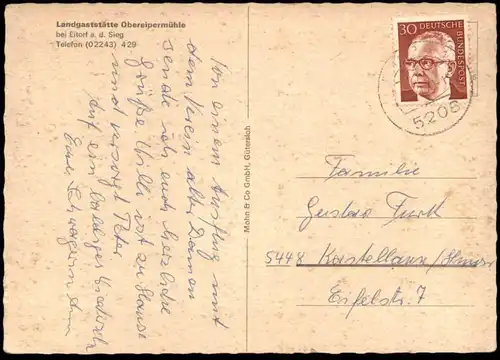 Landgaststätte Obereipermühle
bei Eitorf a. d. Sieg
Telefon (02243) 429
Von einem Ausflug mit
dem Verein alter Damen
sende ich euch herzliche
Grüße Willi ist zu Hause
und versorgt Peter
Auf ein baldiges
Eure Schwägerin
Mohn & Co GmbH, Gütersloh
30
DEUTSCHE
BUNDESPOST
5208
Familie
Gustav Furk
5448 Kastellaun/Hunsr
Eifelstr. 7